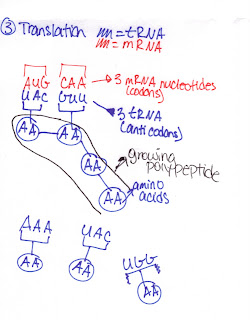 ③ Translation m = tRNA
m = mRNA
AUG CAA → 3 mRNA nucleotides
(codons)
UAC GUU → 3 tRNA
(anticodons)
AA AA
growing
polypeptide
AA
AA amino
acids
AAA UAC UGG
AA AA AA